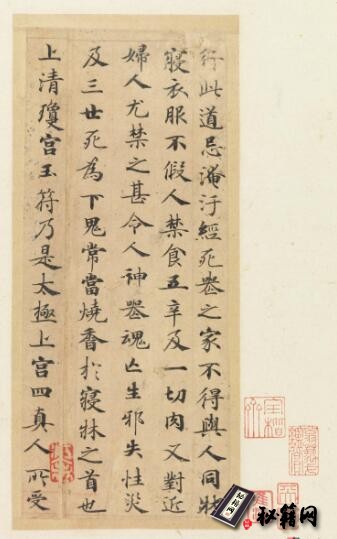 行此道忌淹汙經死喪之家不得與人同牀
寢衣服不假人禁食五辛及一切肉又對近
婦人尤禁之甚令人神喪魂亡生邪失性災
及三世死為下鬼常當燒香於寢牀之首也
上清瓊宮玉符乃是太極上宮四真人所受
秘籍网
秘籍网